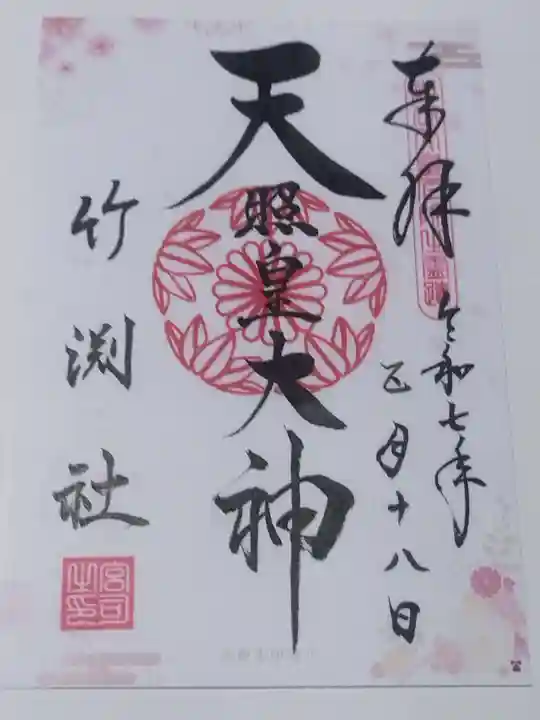 奉拝
令和七年
五月十八日
天照皇大神
竹渕社
宮司之印